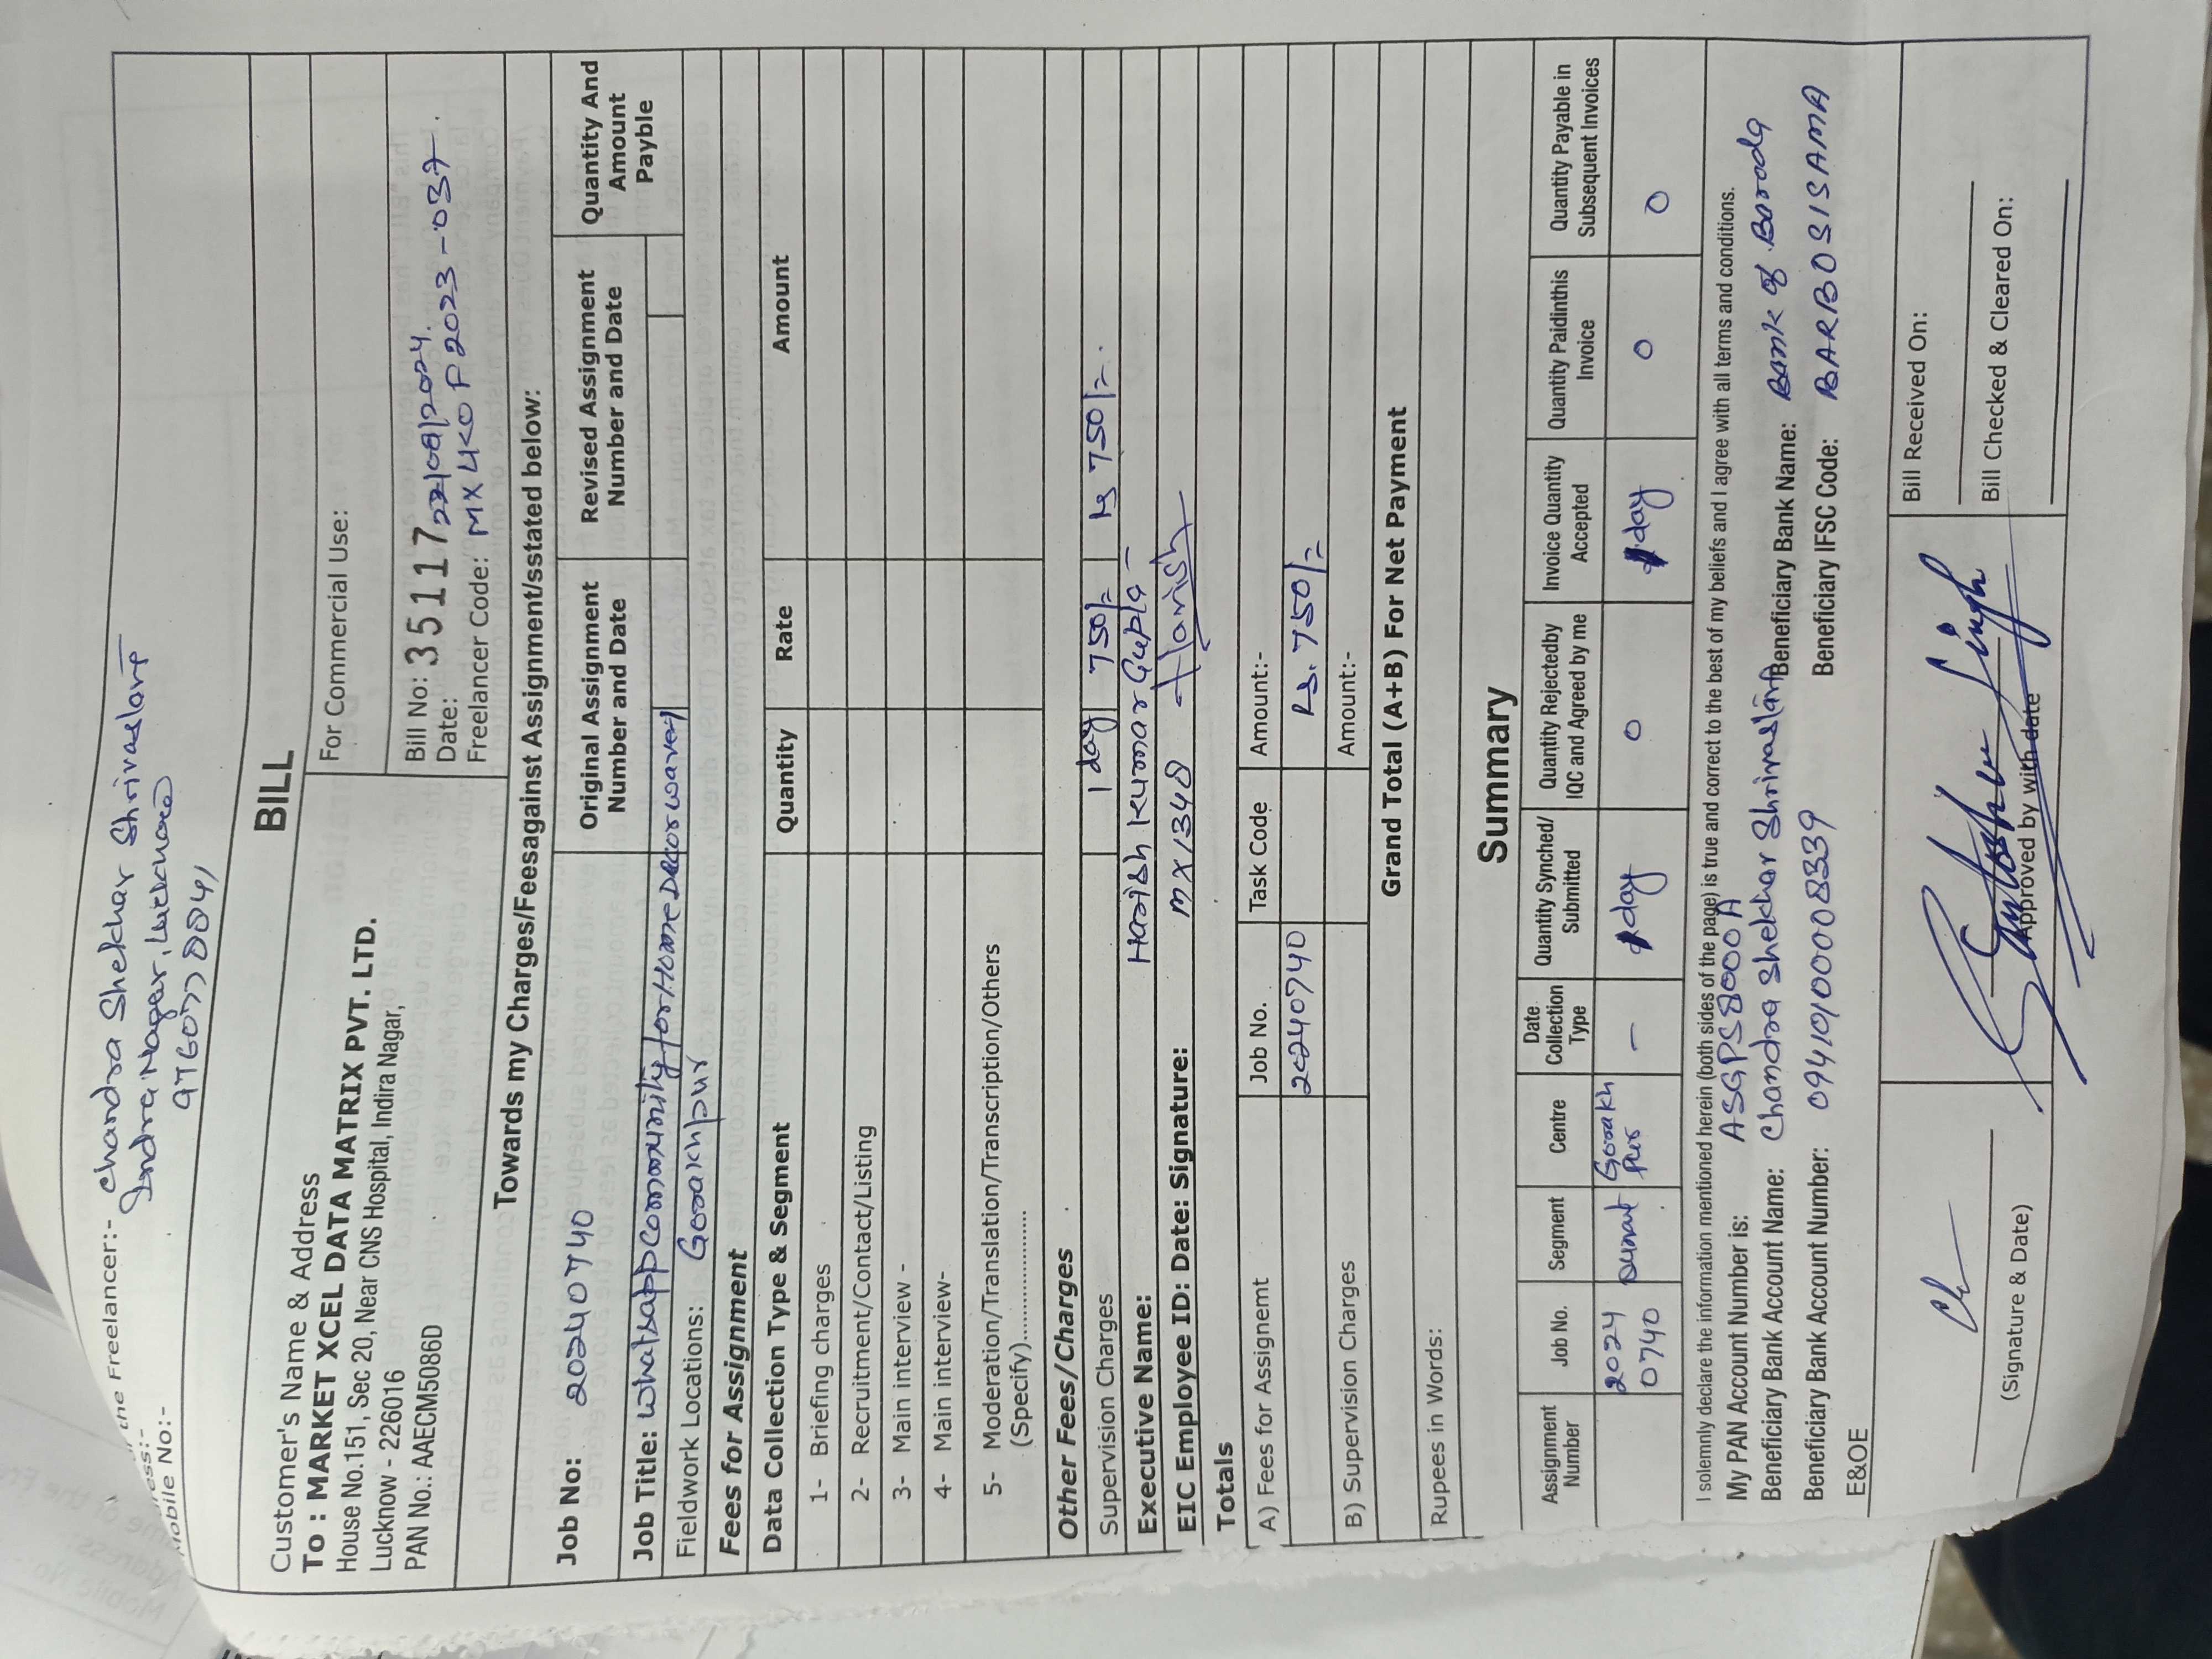 the Freelancer:- Chandra Shekhar Shrivastava
ress:- Indra Nagar, Lucknow
Mobile No:-
BILL
Customer's Name & Address
To : MARKET XCEL DATA MATRIX PVT. LTD.
House No.151, Sec 20, Near CNS Hospital, Indira Nagar,
Lucknow - 226016
PAN No.: AAECM5086D
For Commercial Use:
Bill No: 35117
Date: 22/08/2024.
Freelancer Code: MX UKOP2023-037.
Towards my Charges/Feesagainst Assignment/sstated below:
Job No: 20240740
Original Assignment Number and Date
Revised Assignment Number and Date
Quantity And Amount Payable
Job Title: whatsapp Community for Home Decor wave1
Fieldwork Locations: Gorakhpur
Fees for Assignment
Data Collection Type & Segment Quantity Rate Amount
1- Briefing charges
2- Recruitment/Contact/Listing
3- Main interview -
4- Main interview-
5- Moderation/Translation/Transcription/Others
(Specify)..................
Other Fees/Charges
Supervision Charges 1 day 750/= Rs 750/=.
Executive Name: Harish Kumar Gupta -
EIC Employee ID: Date: Signature: MX1348 Harish
Totals
A) Fees for Assignemt Job No. Task Code Amount:-
20240740 Rs. 750/=
B) Supervision Charges Amount:-
Grand Total (A+B) For Net Payment
Rupees in Words:
Summary
Assignment Number Job No. Segment Centre Date Collection Type Quantity Synched/ Submitted Quantity Rejectedby IQC and Agreed by me Invoice Quantity Accepted Quantity Paidinthis Invoice Quantity Payable in Subsequent Invoices
2024 0740 Gorakh pur — 1 day 0 1 day 0 0
I solemnly declare the information mentioned herein (both sides of the page) is true and correct to the best of my beliefs and I agree with all terms and conditions.
My PAN Account Number is: ASGPS8000A
Beneficiary Bank Account Name: Chandra Shekhar Shrivastava Beneficiary Bank Name: Bank of Baroda
Beneficiary Bank Account Number: 09410100008339 Beneficiary IFSC Code: BARB0SISAMA
E&OE
(Signature & Date)
Santosh Singh
Approved by with date
Bill Received On:
Bill Checked & Cleared On: